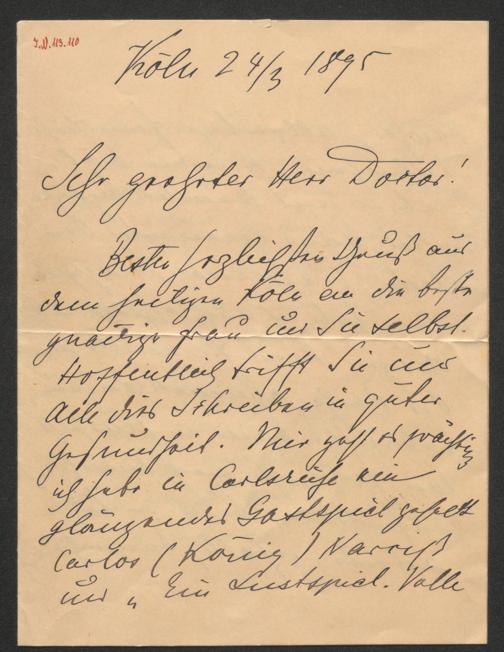 I.N. 113.110
Köln 24/3 1895
Sehr geehrter Herr Doctor!
Besten herzlichsten Gruß aus
dem heiligen Köln an die beste
gnädige Frau und Sie selbst.
Hoffentlich trifft Sie und
alle dies Schreiben in guter
Gesundheit. Mir geht es prächtig
ich habe in Carlsruhe ein
glänzendes Gastspiel gehabt
Carlos (König) Narciß
und „ Ein Lustspiel. Volle